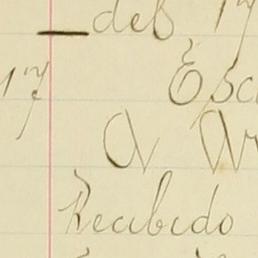 del 17
17 Esc
A
Recibido